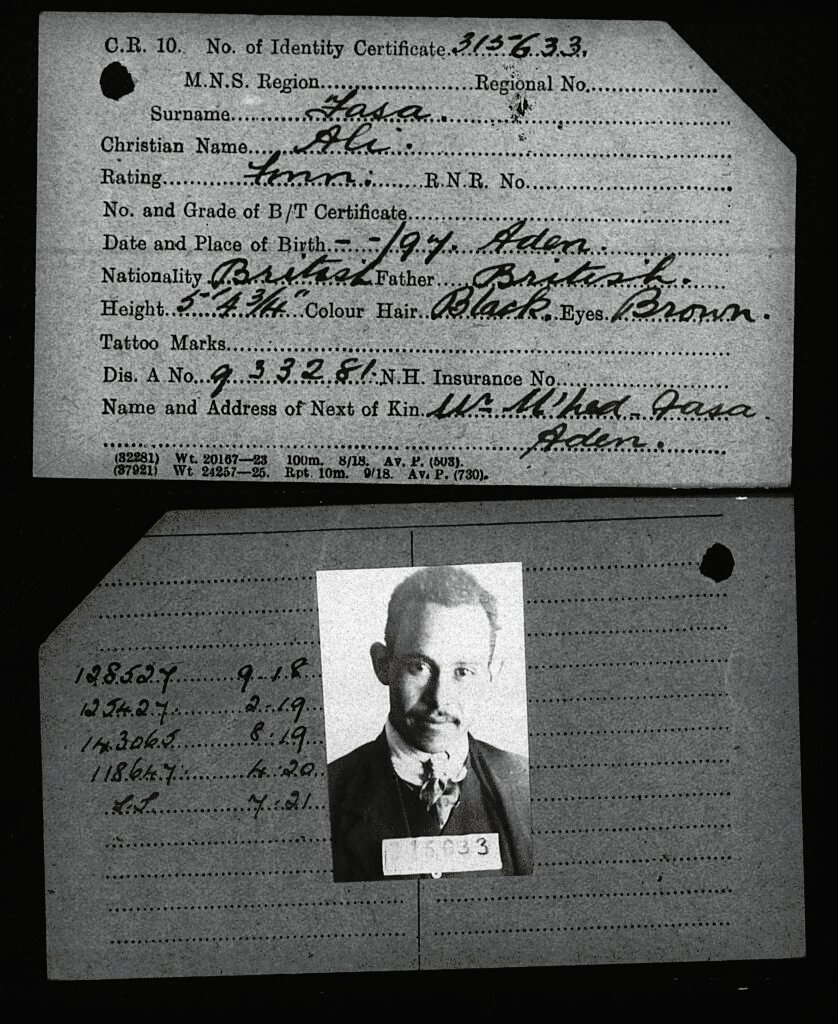 C.R. 10. No. of Identity Certificate 315633.
M.N.S. Region Regional No.
Surname Fasa.
Christian Name Ali.
Rating Fmn: R.N.R. No.
No. and Grade of B/T Certificate
Date and Place of Birth - - /97. Aden.
Nationality British Father British.
Height 5' 4 3/4" Colour Hair Black. Eyes Brown.
Tattoo Marks
Dis. A No. 933281. N.H. Insurance No.
Name and Address of Next of Kin. M'hed - Fasa.
Aden.
(32281) Wt. 20167—23 100m. 8/18. Av. P. (503).
(37921) Wt. 24257—25. Rpt. 10m. 9/18. Av. P. (730).
128527 9.18
125427 2.19
143065 8.19
118647 4.20
L.L 7.21
315633